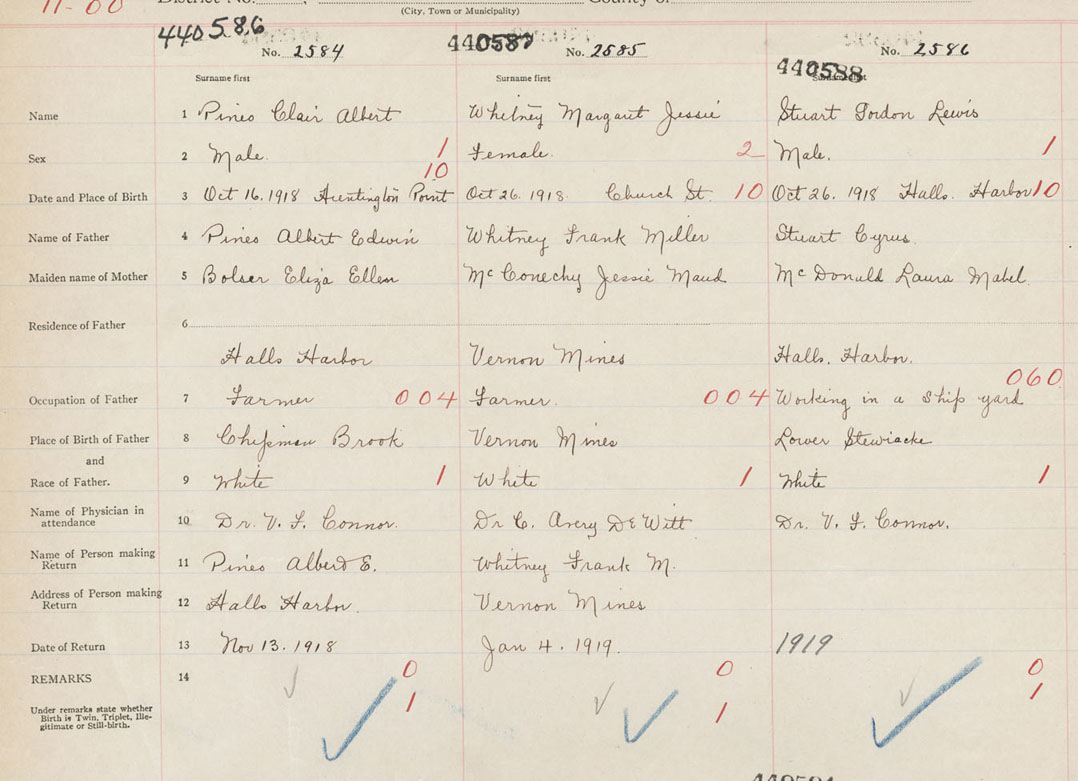 11-00 District No. County of
(City, Town or Municipality)
440586 440587 440588
No. 2584 No. 2585 No. 2586
Surname first Surname first Surname first
Name 1 Pineo Clair Albert Whitney Margaret Jessie Stuart Gordon Lewis
Sex 2 Male. 1 Female. 2 Male. 1
10
Date and Place of Birth 3 Oct 16. 1918 Huntington Point Oct 26. 1918. Church St. 10 Oct 26. 1918 Halls. Harbor 10
Name of Father 4 Pineo Albert Edwin Whitney Frank Miller Stuart Cyrus.
Maiden name of Mother 5 Bolser Eliza Ellen McConechy Jessie Maud McDonald Laura Mabel
Residence of Father 6
Halls Harbor Vernon Mines Halls. Harbor.
060
Occupation of Father 7 Farmer 004 Farmer. 004 Working in a ship yard
Place of Birth of Father 8 Chipman Brook Vernon Mines Lower Stewiacke
and
Race of Father. 9 White 1 White 1 White 1
Name of Physician in
attendance 10 Dr. V. F. Connor. Dr C. Avery DeWitt Dr. V. F. Connor.
Name of Person making
Return 11 Pineo Albert E. Whitney Frank M.
Address of Person making
Return 12 Halls Harbor. Vernon Mines
Date of Return 13 Nov 13. 1918 Jan 4. 1919. 1919
REMARKS 14 0 0 0
1 1 1
Under remarks state whether
Birth is Twin, Triplet, Ille-
gitimate or Still-birth.